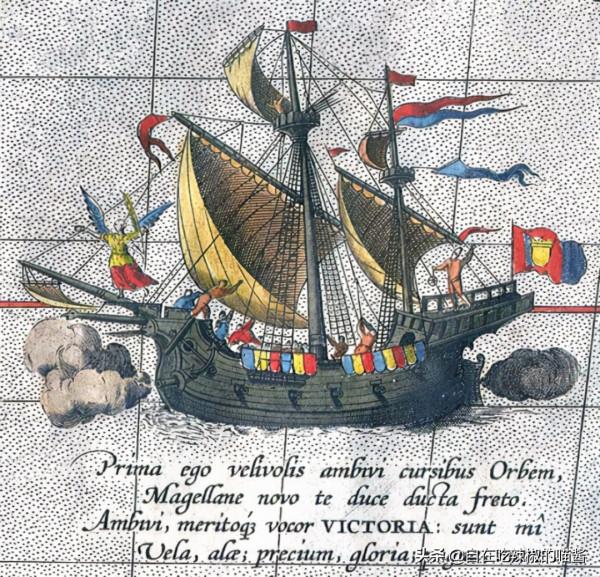 Prima ego velivolis ambivi cursibus Orbem,
Magellane novo te duce ducta freto.
Ambivi, meritoq́; vocor VICTORIA: sunt mi
Vela, alæ; precium, gloria;
头条 @自在吃辣椒的喵酱